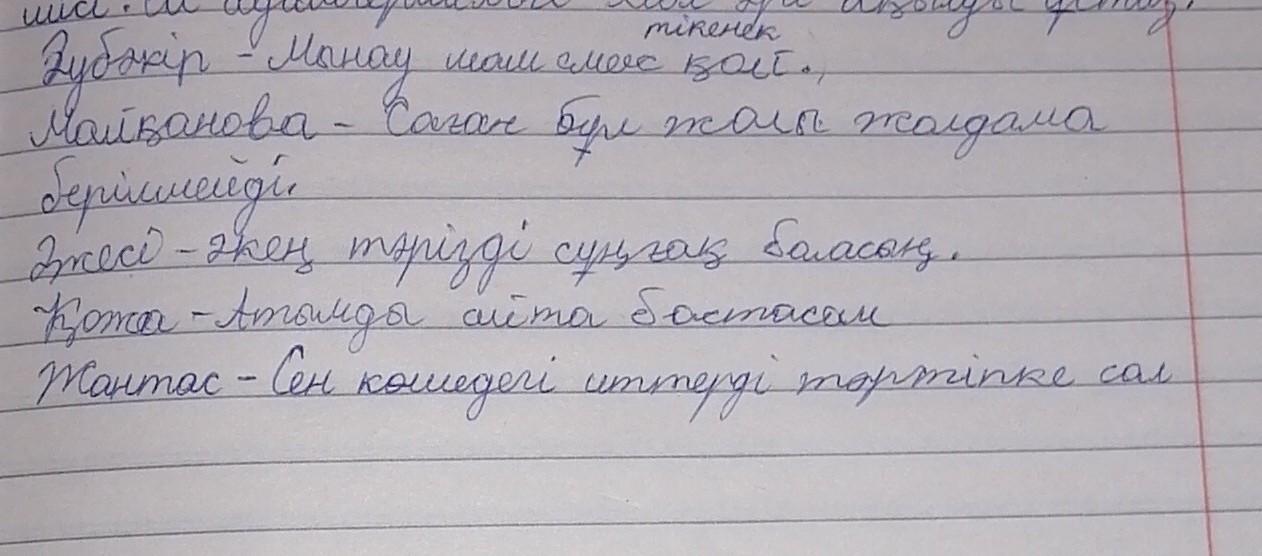 тікенек
Зубәкір - Мынау шам емес қой.
Майқанова - Саған бұл жолы жолдама
берілмейді.
Әжесі - әкең тәрізді сұңғақ баласың.
Қожа - Атымды айта бастасам
Жантас - Сен көшедегі иттерді тәртіпке сал